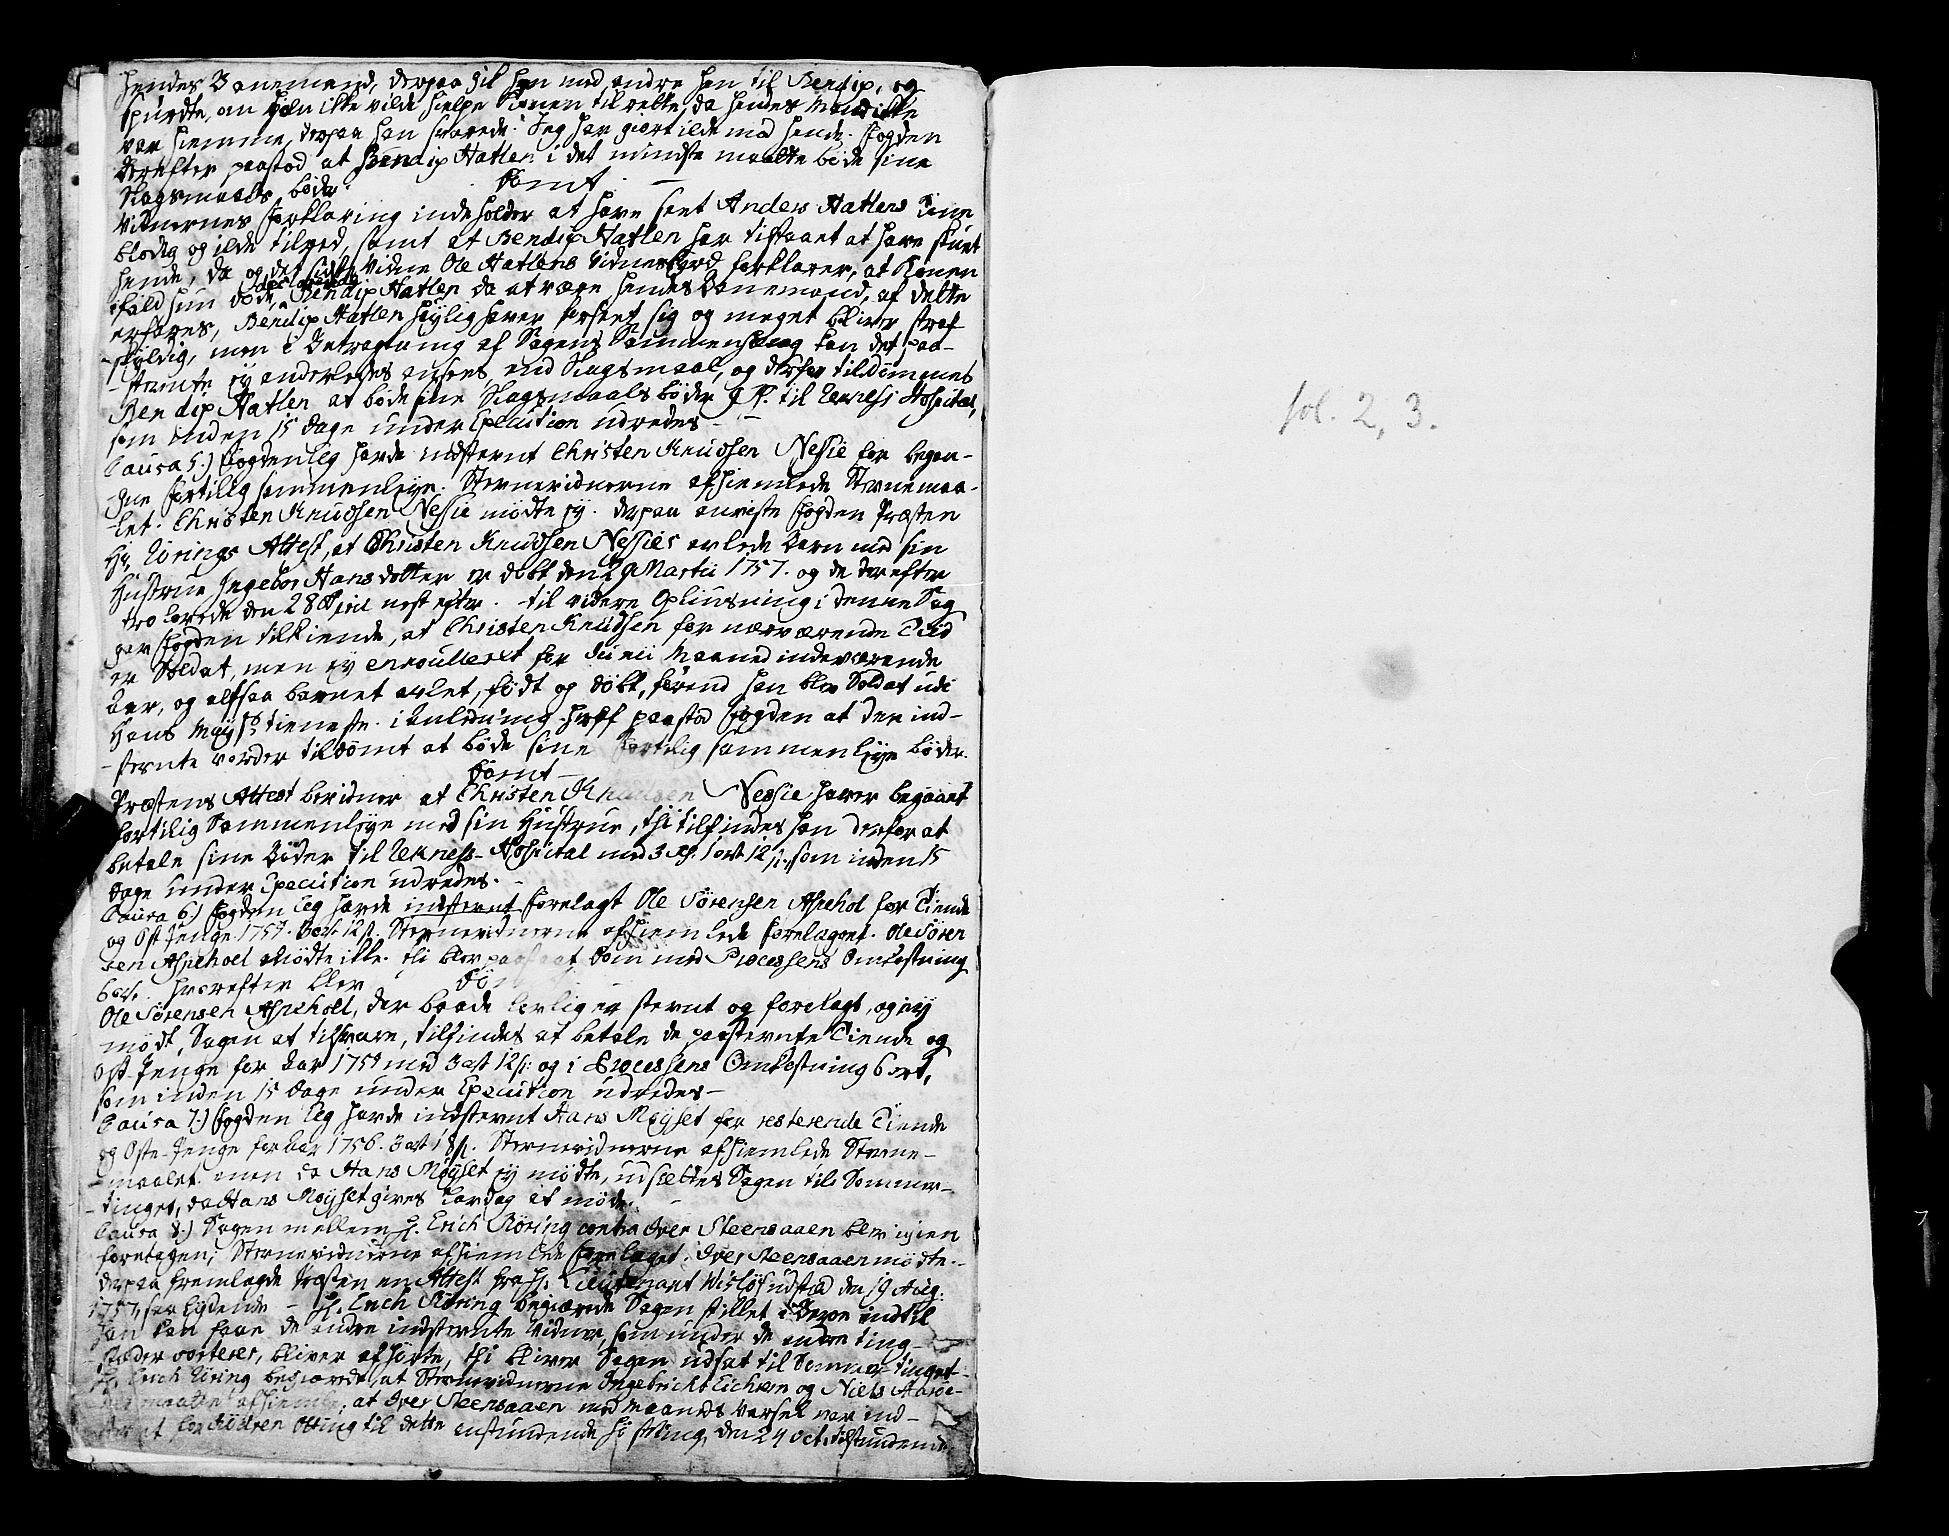 hendes Banemand, derpaa gik han med andre hen til Bendix, og
spurdte, om han ikke vilde hielpe Konen til rette, da hendes Mand ikke
var hiemme, derpaa han svarede: Jeg har giort ilde mod hende. Fogden
derefter paastod at Bendix Hatlen i det mindste maatte bøde sine
Slagsmaals bøder.
Dømt
Vidnernes Forklaring indeholder at have seet Anders Hatlens Kone
blodig og ilde tilreed, samt at Bendix Hatlen har tilstaaet at have
hende, da og det sidste Vidne Ole Hatlens Vidnesbyrd forklarer, at Konen
ifald hun døde, declarerede Bendix Hatlen da at være hendes Banemand, af dette
erfares, Bendix Hatlen høylig haver forseet sig og meget bliver straf
-skyldig, men i Betragtning af Sagens Sammenhæng kan det paa-
-stevnte ey anderledes ansees, end Slagsmaal, og derfor tildømmes
Bendix Hatlen at bøde sine Slagsmaals bøder 9 til Reknæss Hospital,
som inden 15 dage under Execution udredes -
Causa 5.) Fogden leg havde indstevnt Christen Knudsen Nessie for begaa-
-gne fortilig sammenleye. Stevnevidnerne afhiemlede Stevnemaa-
-let. Christen Knudsen Nessie mødte ey. derpaa anviste Fogden Præsten
Hr. Rørings Attest, at Christen Knudsen Nessies avlede Barn med sin
Hustrue Ingebor Hansdotter er døbt den 29 Martii 1757. og de derefter
trolovede den 28 April nest efter. til videre Opliusning i denne Sag
gav Fogden tilkiende, at Christen Knudsen for nærværende Tiid
er Soldat, men ey enroulleret før Junii Maaned indeværende
Aar, og altsaa barnet avlet, født og døbt, førend han blev Soldat udi
Hans Mayst: tieneste. i Anledning heraf paastod Fogden at den ind-
-stevnte vorder tildømt at bøde sine fortilig sammenleye bøder.
Dømt -
Præstens Attest bevidner at Christen Knudsen Nessie haver begaaet
fortilig Sammenleye med sin Hustrue, thi tilfindes han derfor at
betale sine Bøder til Reknæss Hospital med 3 1 ort 12 s. som inden 15
dage under Execution udredes. -
Causa 6.) Fogden leg havde indstevnt forelagt Ole Sørensen Aspehol for Tiende
og Ost Penge 1757. 3 ort 12 s. Stevnevidnerne afhiemlede forelaget. Ole Søren
sen Aspehoel mødte ikke. thi blev paastaaet Dom med Processens Omkostning
6 ort. hvorefter blev Dømt
Ole Sørensen Aspehoel, der baade lovlig er stevnt og forelagt, og ey
mødt, Sagen at tilsvare, tilfindes at betale de paastevnte Tiende og
Ost-Penge for Aar 1757 med 3 ort 12 s: og i Processens Omkostning 6 ort,
som inden 15 Dage under Execution udredes -
Causa 7.) Fogden leg havde indstevnt Hans Møyset for resterende Tiende
og Oste-Penge for Aar 1756. 3 ort 18 s. Stevnevidnerne afhiemlede Stevne-
-maalet. men da Hans Møyset ey mødte, udsættes Sagen til Sommer-
-tinget, da Hans Møyset gives Lavdag at møde.
Causa 8.) Sagen mellem H. Erich Røring contra Iver Steensaaen blev igien
foretagen; Stevnevidnerne afhiemlede forelaget. Iver Steensaaen mødte.
derpaa fremlagde Præsten en Attest fra H. Lieutenant Wisløf udstæd den 19 Aug:
1757, saa lydende - H. Erich Røring begiærede Sagen stillet i Beroe indtil
han kan faae de andre indstevnte Vidner, som under de andre ting-
-stæder sorterer, bliver afhørte, thi bliver Sagen udsat til Sommer-tinget.
H. Erich Røring begiærede, at Stevnevidnerne Ingebricht Eichrem og Niels Aarøe-
maatte afhiemle, at Iver Steensaaen med Maaneds Varsel var ind-
for Rødven Otting til dette anstundende Høsteting, den 24 Oct. tilstundende
fol. 2, 3.